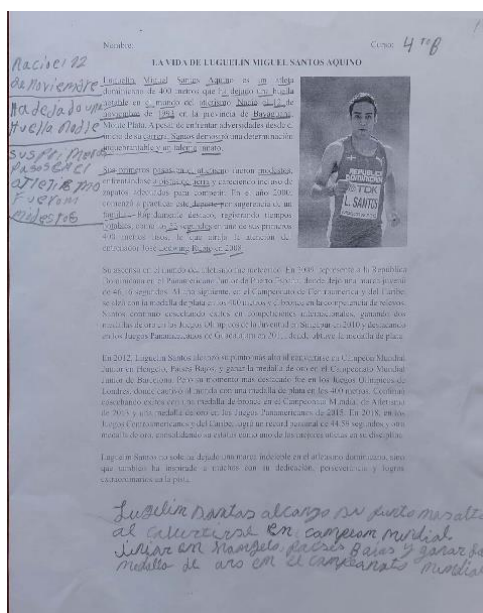 Nombre: Curso: 4 to B
LA VIDA DE LUGUELIN MIGUEL SANTOS AQUINO
Nacio el 12
de noviembre
Ha dejado una
Huella
sus primeros
pasos en el
atletismo
fueron
modestos
Luguelín Miguel Santos Aquino es un atleta
dominicano de 400 metros que ha dejado una huella
notable en el mundo del atletismo. Nació el 12 de
noviembre de 1993 en la provincia de Bayaguana,
Monte Plata. A pesar de enfrentar adversidades desde el
inicio de su carrera, Santos demostró una determinación
inquebrantable y un talento innato.
Sus primeros pasos en el atletismo fueron modestos,
enfrentándose a pistas de tierra y careciendo incluso de
zapatos adecuados para competir. En el año
comenzó a practicar este deporte por sugerencia de un
Rápidamente destacó, registrando tiempos
como los segundos en una de sus primeras
400 metros lo que atrajo la atención de
entrenador José Rubio en 2008
REPUBLICA
DOMINICANA
TDK
L. SANTOS
Su ascenso en el mundo del atletismo fue meteórico. En 2009, representó a la República
Dominicana en el Panamericano Junior de Puerto España, donde dejó una marca juvenil
de segundos. Al año siguiente, en el Campeonato de Centroamérica y del Caribe,
se alzó con la medalla de plata en los 400 metros y el bronce en la competencia de relevos.
Santos continuó cosechando éxitos en competiciones internacionales, ganando dos
medallas de oro en los Juegos Olímpicos de la Juventud de Singapur en 2010 y destacando
en los Juegos Panamericanos de Guadalajara en 2011, donde obtuvo la medalla de plata.
En 2012, Luguelín Santos alcanzó su punto más alto al convertirse en Campeón Mundial
Junior en Hengelo, Países Bajos, y ganar la medalla de oro en el Campeonato Mundial
Junior de Barcelona. Pero su momento más destacado fue en los Juegos Olímpicos de
Londres, donde cautivó al mundo con una medalla de plata en los 400 metros. Continuó
cosechando éxitos con una medalla de bronce en el Campeonato Mundial de Atletismo
de 2013 y una medalla de oro en los Juegos Panamericanos de 2015. En 2018, en los
Juegos Centroamericanos y del Caribe, logró un récord personal de 44.59 segundos y otra
medalla de oro, consolidando su estatus como uno de los mejores atletas en su disciplina.
Luguelín Santos no solo ha dejado una marca indeleble en el atletismo dominicano, sino
que también ha inspirado a muchos con su dedicación, perseverancia y logros
extraordinarios en la pista.
Lugelin Santos alcanzo su punto mas alto
al en campeon mundial
en Paises Baias y ganar la
medalla de oro en el campeonato mundial